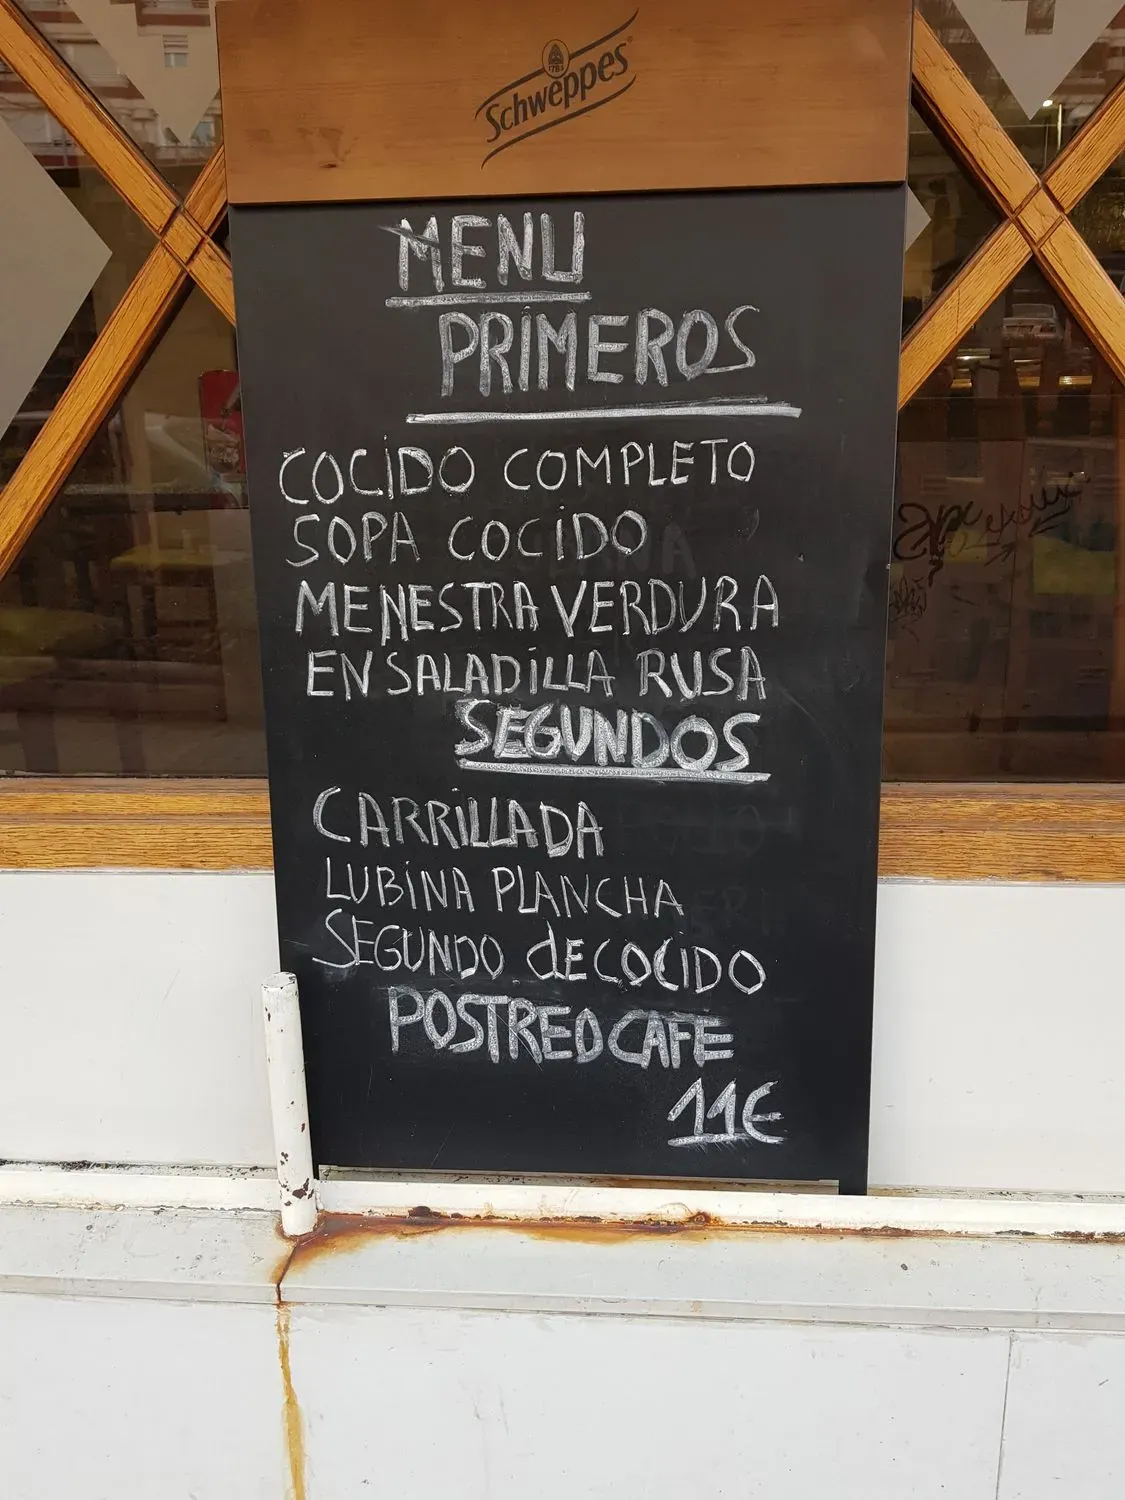 1783
Schweppes
MENU
PRIMEROS
COCIDO COMPLETO
SOPA COCIDO
MENESTRA VERDURA
ENSALADILLA RUSA
SEGUNDOS
CARRILLADA
LUBINA PLANCHA
SEGUNDO dE COCIDO
POSTRE O CAFE
11€